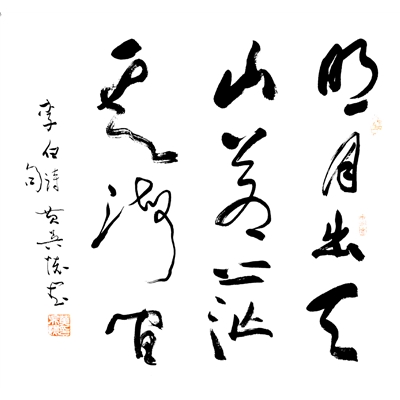 明月出天
山蒼茫
雲海間
李白詩句